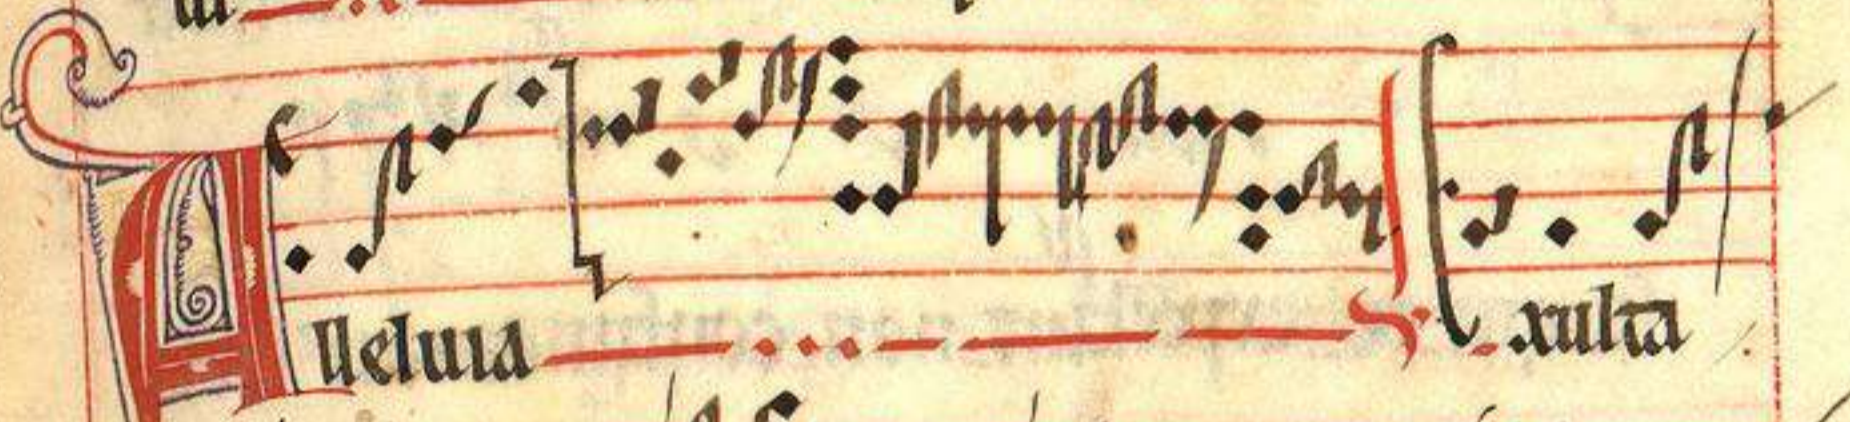 Alleluia Exulta